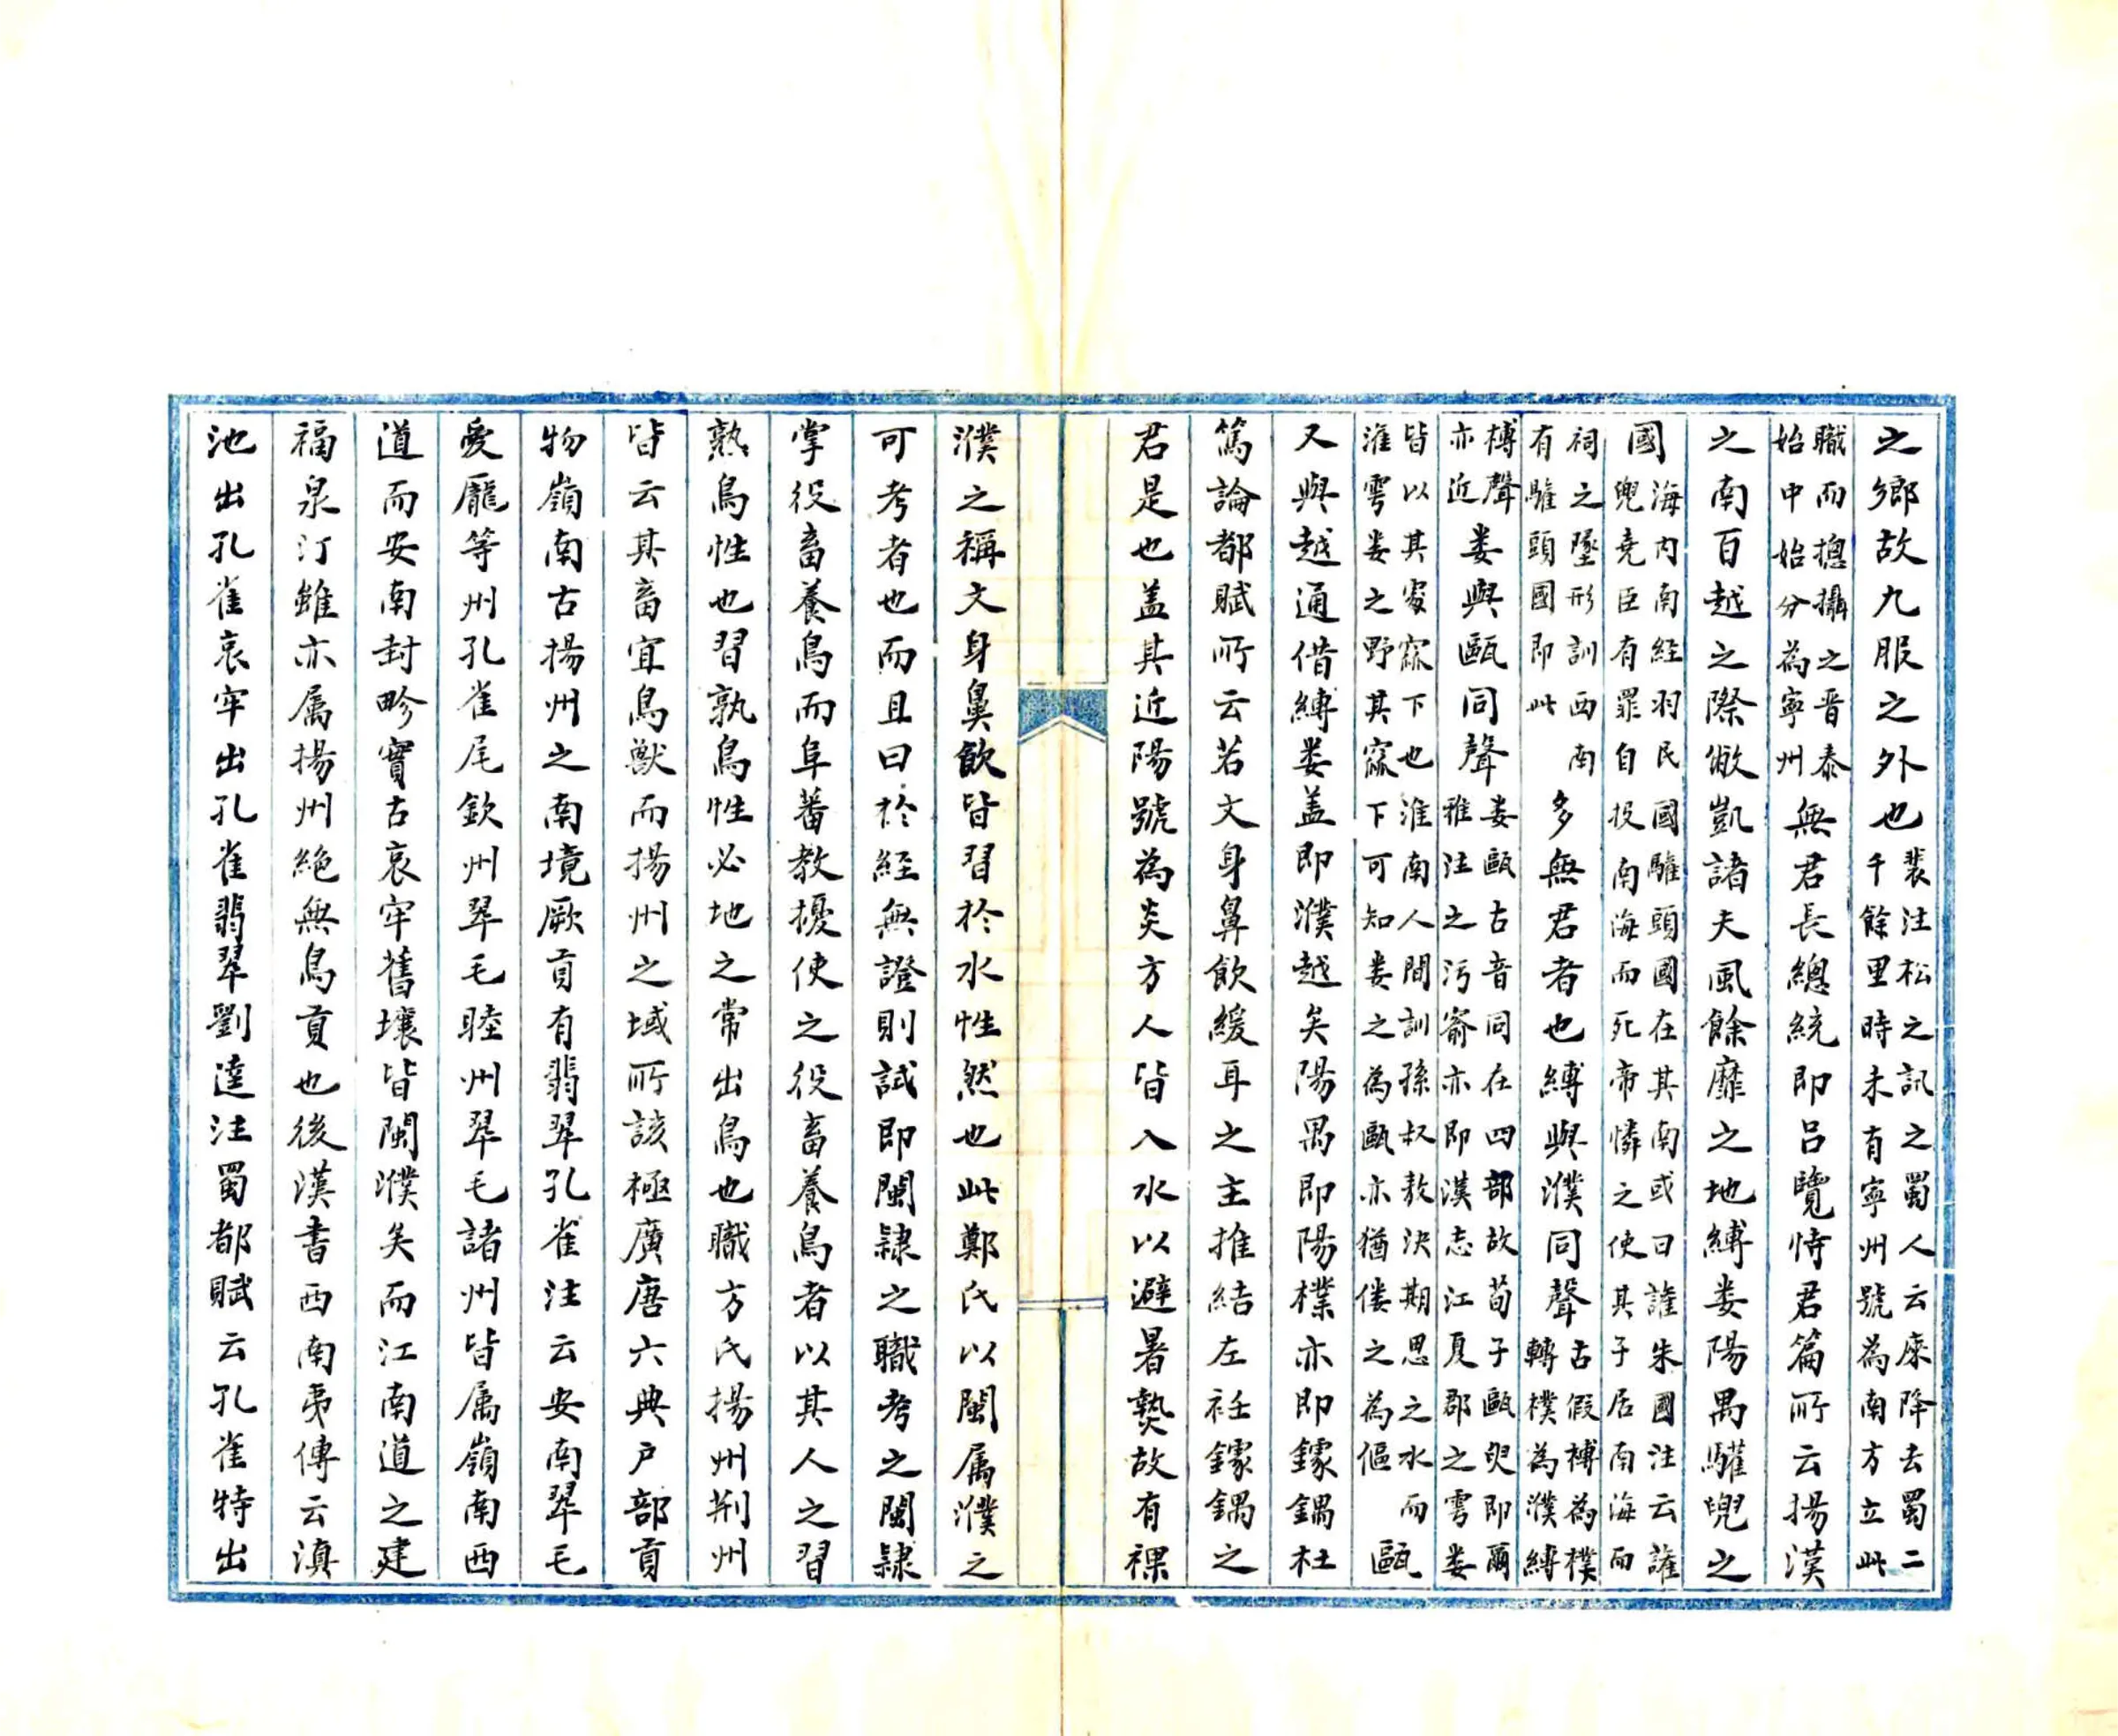 之鄉故九服之外也裴注松之訊之蜀人云庲降去蜀二千餘里時未有寧州號為南方立此
職而摠攝之晋泰始中始分為寧州無君長總統即吕覽恃君篇所云揚漢
之南百越之際敝凱諸夫風餘靡之地縛婁陽禺驩兜之
國海内南經羽民國驩頭國在其南或曰讙朱國注云讙兜堯臣有罪自投南海而死帝憐之使其子居南海而
祠之墬形訓西南有驩頭國即此多無君者也縛與濮同聲古假欂為樸轉樸為濮縛
欂聲亦近婁與甌同聲婁甌古音同在四部故荀子甌臾即爾雅注之污窬亦即漢志江夏郡之雩婁
皆以其窊下也淮南人間訓孫叔敖決期思之水而灌雩婁之野其窊下可知婁之為甌亦猶僂之為傴甌
又與越通借縛婁盖即濮越矣陽禺即陽樸亦即鐻鍝杜
篤論都賦所云若文身鼻飲緩耳之主推結左衽鐻鍝之
君是也盖其近陽號為炎方人皆入水以避暑爇故有裸
濮之稱文身鼻飲皆習於水性然也此鄭氏以閩属濮之
可考者也而且曰於經無證則試即閩隸之職考之閩隸
掌役畜養鳥而阜蕃教擾使之役畜養鳥者以其人之習
熟鳥性也習孰鳥性必地之常出鳥也職方氏揚州荆州
皆云其畜宜鳥獸而揚州之域所該極廣唐六典户部貢
物嶺南古揚州之南境厥貢有翡翠孔雀注云安南翠毛
爱龎等州孔雀尾欽州翠毛睦州翠毛諸州皆属嶺南西
道而安南封畛實古哀牢舊壤皆閩濮矣而江南道之建
福泉汀雖亦属揚州絶無鳥貢也後漢書西南夷傳云滇
池出孔雀哀牢出孔雀翡翠劉逵注蜀都賦云孔雀特出